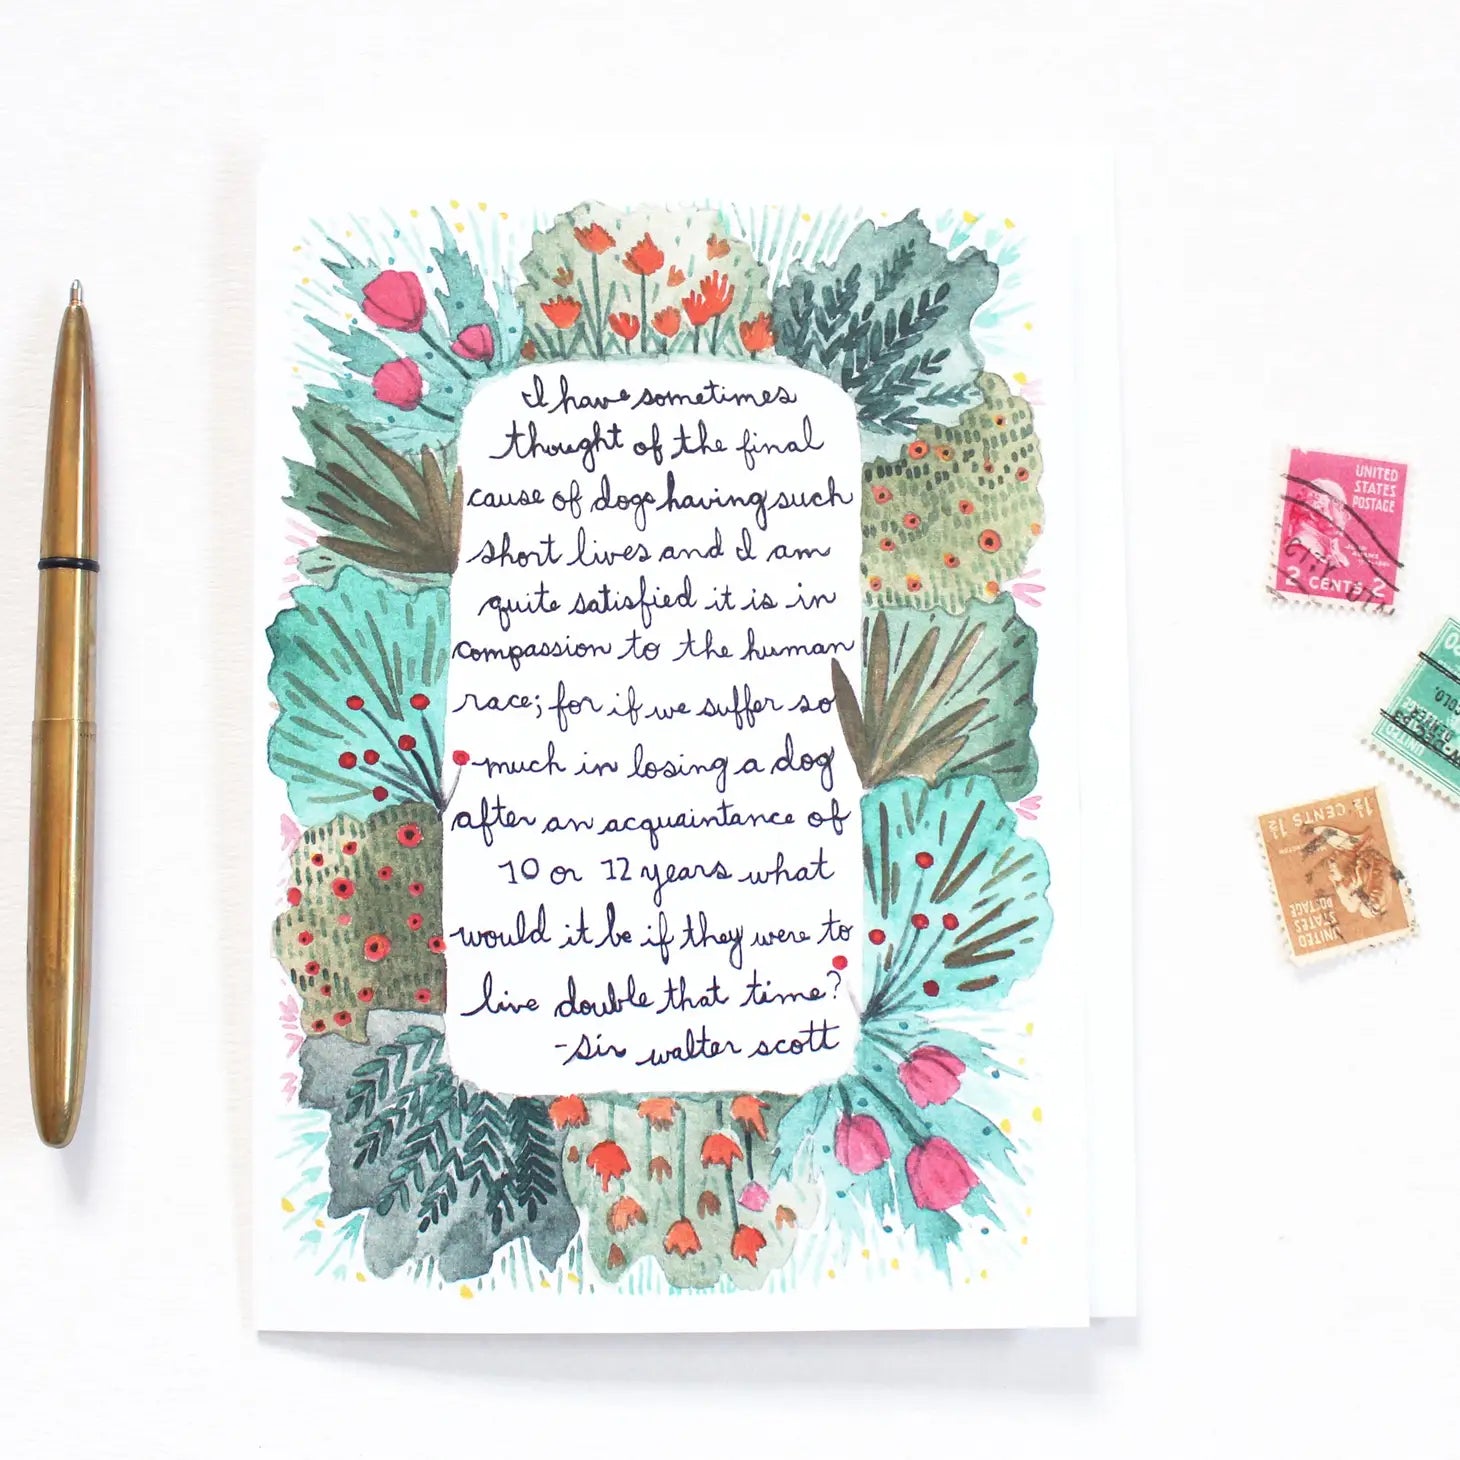 I have sometimes
thought of the final
cause of dogs having such
short lives and I am
quite satisfied it is in
compassion to the human
race; for if we suffer so
much in losing a dog
after an acquaintance of
10 or 12 years what
would it be if they were to
live double that time?
-Sir walter scott
UNITED
STATES
POSTAGE
2 CENTS 2
1½ CENTS 1½
UNITED
STATES
POSTAGE